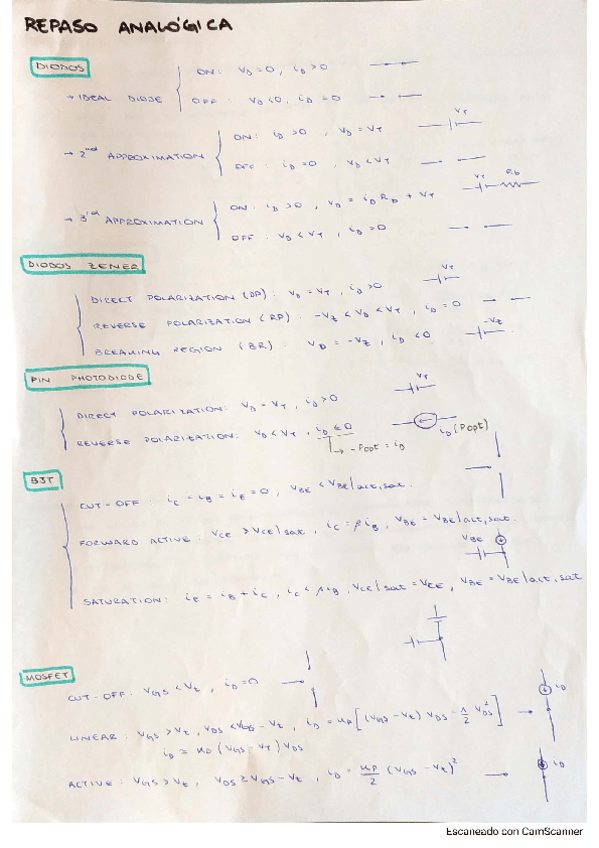 REPASO ANALÓGICA
DIODOS
→ IDEAL DIODE
ON: VD = 0, iD > 0
OFF: VD ≤ 0, iD = 0
→ 2nd APPROXIMATION
ON: iD > 0, VD = VT
OFF: iD = 0, VD < VT
VT
→ 3rd APPROXIMATION
ON: iD > 0, VD = iD RD + VT
OFF: VD < VT, iD = 0
VT RD
DIODOS ZENER
DIRECT POLARIZATION (DP): VD = VT, iD > 0
VT
REVERSE POLARIZATION (RP): -VZ < VD < VT, iD = 0
BREAKING REGION (BR): VD = -VZ, iD < 0
-VZ
PIN PHOTODIODE
DIRECT POLARIZATION: VD = VT, iD > 0
VT
REVERSE POLARIZATION: VD < VT, iD ≤ 0
iD (Popt)
→ - Popt = iD
BJT
CUT-OFF: iC = iB = iE = 0, VBE < VBE|act,sat.
FORWARD ACTIVE: VCE > VCE|sat, iC = β iB, VBE = VBE|act,sat.
VBE
SATURATION: iE = iB + iC, iC < β iB, VCE|sat = VCE, VBE = VBE|act,sat
MOSFET
CUT-OFF: VGS < Vt, iD = 0
LINEAR: VGS > Vt, VDS < VGS - Vt, iD = μp [(VGS - Vt) VDS - 1/2 VDS²] → iD
(VGS - VT) VDS
ACTIVE: VGS > Vt, VDS ≥ VGS - Vt, iD = μp/2 (VGS - Vt)² → iD
Escaneado con CamScanner